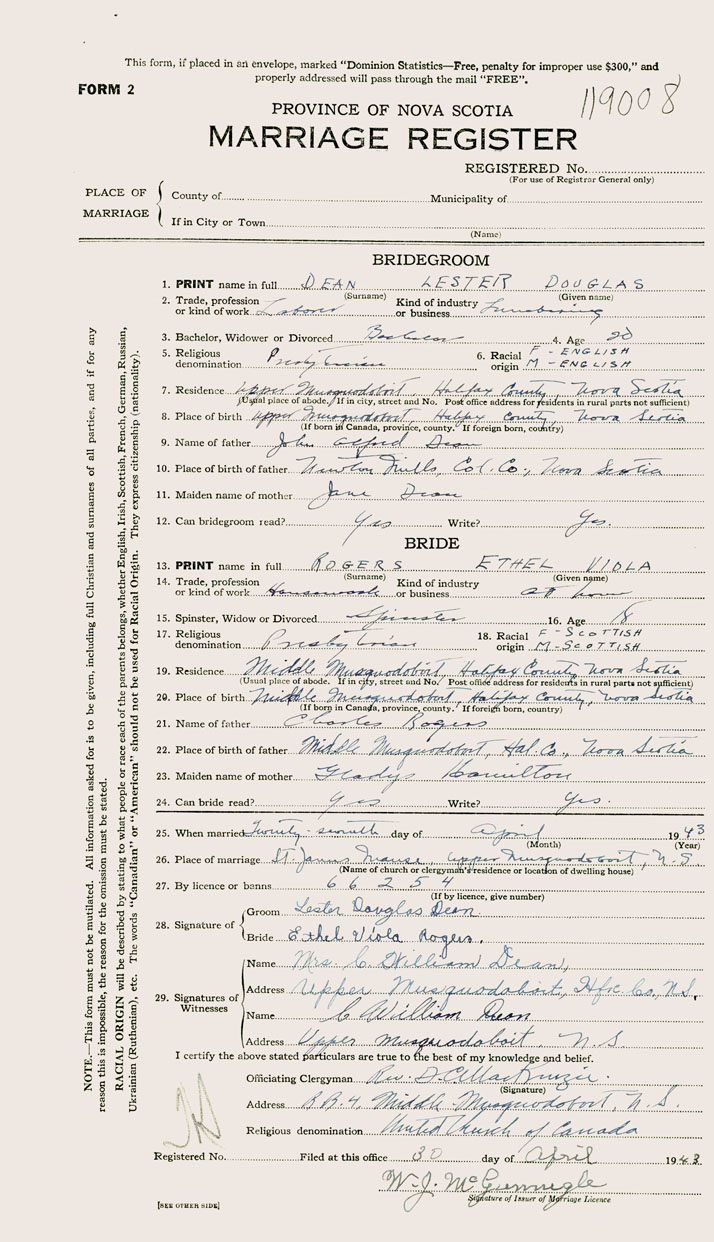 This form, if placed in an envelope, marked "Dominion Statistics—Free, penalty for improper use $300," and
properly addressed will pass through the mail "FREE".
FORM 2
119008
PROVINCE OF NOVA SCOTIA
MARRIAGE REGISTER
REGISTERED No.
(For use of Registrar General only)
PLACE OF MARRIAGE
County of Municipality of
If in City or Town
(Name)
BRIDEGROOM
1. PRINT name in full DEAN LESTER DOUGLAS
(Surname) (Given name)
2. Trade, profession or kind of work Laborer Kind of industry or business Lumbering
3. Bachelor, Widower or Divorced Bachelor 4. Age 20
5. Religious denomination Presbyterian 6. Racial origin F - ENGLISH M - ENGLISH
7. Residence Upper Musquodoboit, Halifax County, Nova Scotia
(Usual place of abode. If in city, street and No. Post office address for residents in rural parts not sufficient)
8. Place of birth Upper Musquodoboit, Halifax County, Nova Scotia
(If born in Canada, province, county. If foreign born, country)
9. Name of father John Alford Dean
10. Place of birth of father Newton Mills, Col. Co., Nova Scotia
11. Maiden name of mother Jane Dean
12. Can bridegroom read? Yes Write? Yes.
BRIDE
13. PRINT name in full ROGERS ETHEL VIOLA
(Surname) (Given name)
14. Trade, profession or kind of work Housework Kind of industry or business at home
15. Spinster, Widow or Divorced Spinster 16. Age 18
17. Religious denomination Presbyterian 18. Racial origin F - SCOTTISH M - SCOTTISH
19. Residence Middle Musquodoboit, Halifax County, Nova Scotia
(Usual place of abode. If in city, street and No. Post office address for residents in rural parts not sufficient)
20. Place of birth Middle Musquodoboit, Halifax County, Nova Scotia
(If born in Canada, province, county. If foreign born, country)
21. Name of father Charles Rogers
22. Place of birth of father Middle Musquodoboit, Hal. Co., Nova Scotia
23. Maiden name of mother Gladys Hamilton
24. Can bride read? Yes Write? Yes.
25. When married Twenty-seventh day of April 1943
(Month) (Year)
26. Place of marriage St. James Manse, Upper Musquodoboit, N.S
(Name of church or clergyman's residence or location of dwelling house)
27. By licence or banns 66254
(If by licence, give number)
28. Signature of
Groom Lester Douglas Dean.
Bride Ethel Viola Rogers.
29. Signatures of Witnesses
Name Mrs. C William Dean,
Address Upper Musquodoboit, Hfx. Co., N.S.,
Name C William Dean
Address Upper Musquodoboit, N.S
I certify the above stated particulars are true to the best of my knowledge and belief.
Officiating Clergyman Rev. D. C. MacKenzie.
(Signature)
Address R.R.4, Middle Musquodoboit, N.S.
Religious denomination United Church of Canada
Registered No. Filed at this office 30 day of April 1943
W. J. McGunnigle
Signature of Issuer of Marriage Licence
[SEE OTHER SIDE]
NOTE.—This form must not be mutilated. All information asked for is to be given, including full Christian and surnames of all parties, and if for any
reason this is impossible, the reason for the omission must be stated.
RACIAL ORIGIN will be described by stating to what people or race each of the parents belongs, whether English, Irish, Scottish, French, German, Russian,
Ukrainian (Ruthenian), etc. The words "Canadian" or "American" should not be used for Racial Origin. They express citizenship (nationality).